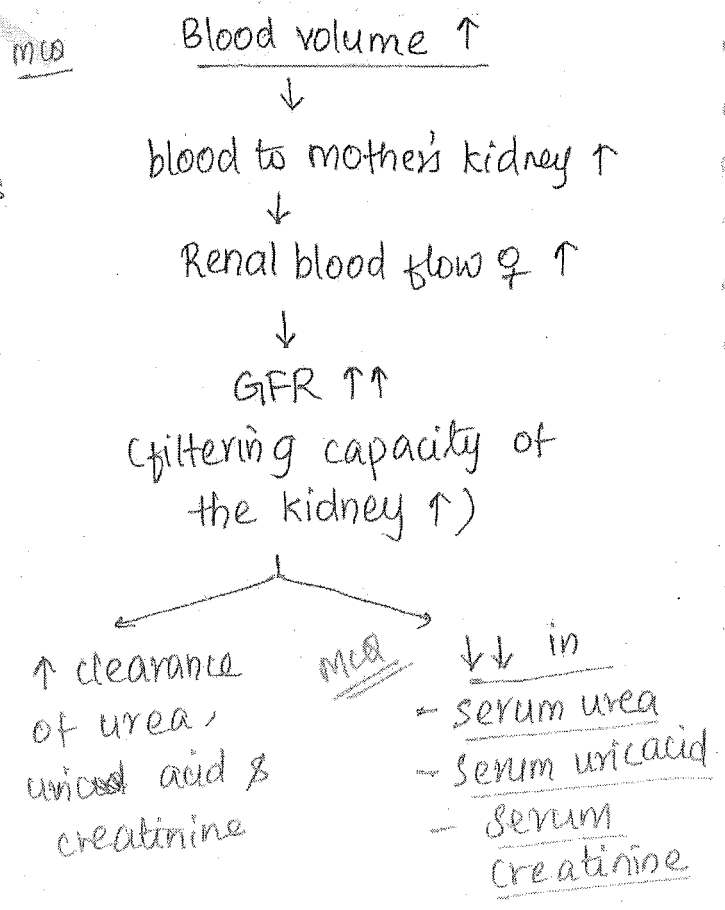 MCQ
Blood volume ↑
↓
blood to mother's kidney ↑
↓
Renal blood flow ♀ ↑
↓
GFR ↑↑
(filtering capacity of
the kidney ↑)
↑ clearance
of urea,
uric acid &
creatinine
MCQ
↓↓ in
- serum urea
- serum uric acid
- serum
creatinine